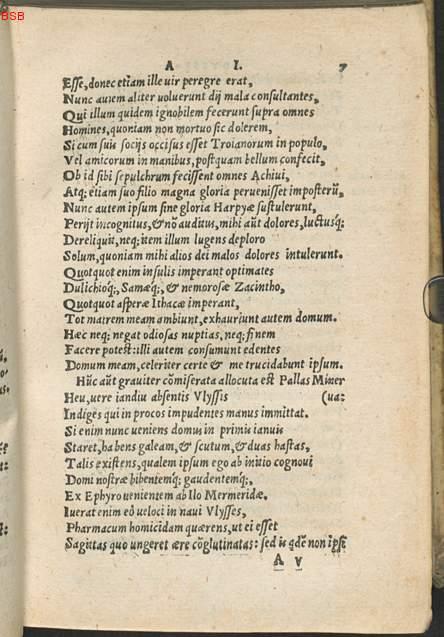 BSB
A I. 7
Esse, donec etiam ille uir peregre erat,
Nunc autem aliter uoluerunt dij mala consultantes,
Qui illum quidem ignobilem fecerunt supra omnes
Homines, quoniam non mortuo sic dolerem,
Si cum suis socijs occisus esset Troianorum in populo,
Vel amicorum in manibus, postquam bellum confecit,
Ob id sibi sepulchrum fecissent omnes Achiui,
Atq; etiam suo filio magna gloria peruenisset imposterũ,
Nunc autem ipsum sine gloria Harpyæ sustulerunt,
Perijt incognitus, & nõ auditus, mihi aũt dolores, luctusq;
Dereliquit, neq; item illum lugens deploro
Solum, quoniam mihi alios dei malos dolores intulerunt.
Quotquot enim insulis imperant optimates
Dulichioq;, Samæq;, & nemorosæ Zacintho,
Quotquot asperæ Ithacæ imperant,
Tot matrem meam ambiunt, exhauriunt autem domum.
Hæc neq; negat odiosas nuptias, neq; finem
Facere potest: illi autem consumunt edentes
Domum meam, celeriter certe & me trucidabunt ipsum.
Hũc aũt grauiter cõmiserata allocuta est Pallas Miner
Heu, uere iandiu absentis Vlyssis (ua:
Indiges qui in procos impudentes manus immittat.
Si enim nunc ueniens domus in primis ianuis
Staret, habens galeam, & scutum, & duas hastas,
Talis existens, qualem ipsum ego ab initio cognoui
Domi nostræ bibentemq; gaudentemq;,
Ex Ephyro uenientem ab Ilo Mermeridæ.
Iuerat enim eò ueloci in naui Vlysses,
Pharmacum homicidam quærens, ut ei esset
Sagittas quo ungeret ære cõglutinatas: sed is qdẽ non ipsi
A V